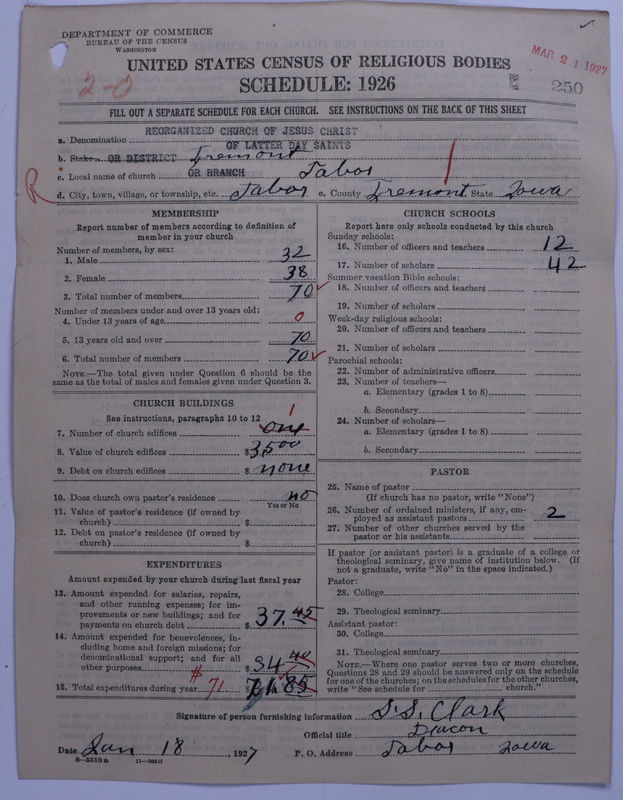 DEPARTMENT OF COMMERCE
BUREAU OF THE CENSUS
WASHINGTON
MAR 21 1927
UNITED STATES CENSUS OF RELIGIOUS BODIES
SCHEDULE: 1926
2-0
250
FILL OUT A SEPARATE SCHEDULE FOR EACH CHURCH. SEE INSTRUCTIONS ON THE BACK OF THIS SHEET
REORGANIZED CHURCH OF JESUS CHRIST
a. Denomination
OF LATTER DAY SAINTS
b. Stake OR DISTRICT Fremont
c. Local name of church OR BRANCH Tabor
R
d. City, town, village, or township, etc. Tabor e. County Fremont State Iowa
MEMBERSHIP
Report number of members according to definition of
member in your church
Number of members, by sex:
1. Male 32
2. Female 38
3. Total number of members 70
Number of members under and over 13 years old:
4. Under 13 years of age 0
5. 13 years old and over 70
6. Total number of members 70
NOTE.—The total given under Question 6 should be the
same as the total of males and females given under Question 3.
CHURCH BUILDINGS
See instructions, paragraphs 10 to 12
1
7. Number of church edifices one
8. Value of church edifices $ 3,500
9. Debt on church edifices $ none
10. Does church own pastor's residence no
Yes or No
11. Value of pastor's residence (if owned by
church) $
12. Debt on pastor's residence (if owned by
church) $
EXPENDITURES
Amount expended by your church during last fiscal year
13. Amount expended for salaries, repairs,
and other running expenses; for im-
provements or new buildings; and for
payments on church debt $ 37.45
14. Amount expended for benevolences, in-
cluding home and foreign missions; for
denominational support; and for all
other purposes $ 34.40
15. Total expenditures during year $71 $ 71.85
CHURCH SCHOOLS
Report here only schools conducted by this church
Sunday schools:
16. Number of officers and teachers 12
17. Number of scholars 42
Summer vacation Bible schools:
18. Number of officers and teachers
19. Number of scholars
Week-day religious schools:
20. Number of officers and teachers
21. Number of scholars
Parochial schools:
22. Number of administrative officers
23. Number of teachers—
a. Elementary (grades 1 to 8)
b. Secondary
24. Number of scholars—
a. Elementary (grades 1 to 8)
b. Secondary
PASTOR
25. Name of pastor
(If church has no pastor, write "None")
26. Number of ordained ministers, if any, em-
ployed as assistant pastors 2
27. Number of other churches served by the
pastor or his assistants
If pastor (or assistant pastor) is a graduate of a college or
theological seminary, give name of institution below. (If
not a graduate, write "No" in the space indicated.)
Pastor:
28. College
29. Theological seminary
Assistant pastor:
30. College
31. Theological seminary
NOTE.—Where one pastor serves two or more churches,
Questions 28 and 29 should be answered only on the schedule
for one of the churches; on the schedules for the other churches,
write "See schedule for church."
Signature of person furnishing information S.S. Clark
Official title Deacon
Date Jan 18, 1927 P. O. Address Tabor Iowa